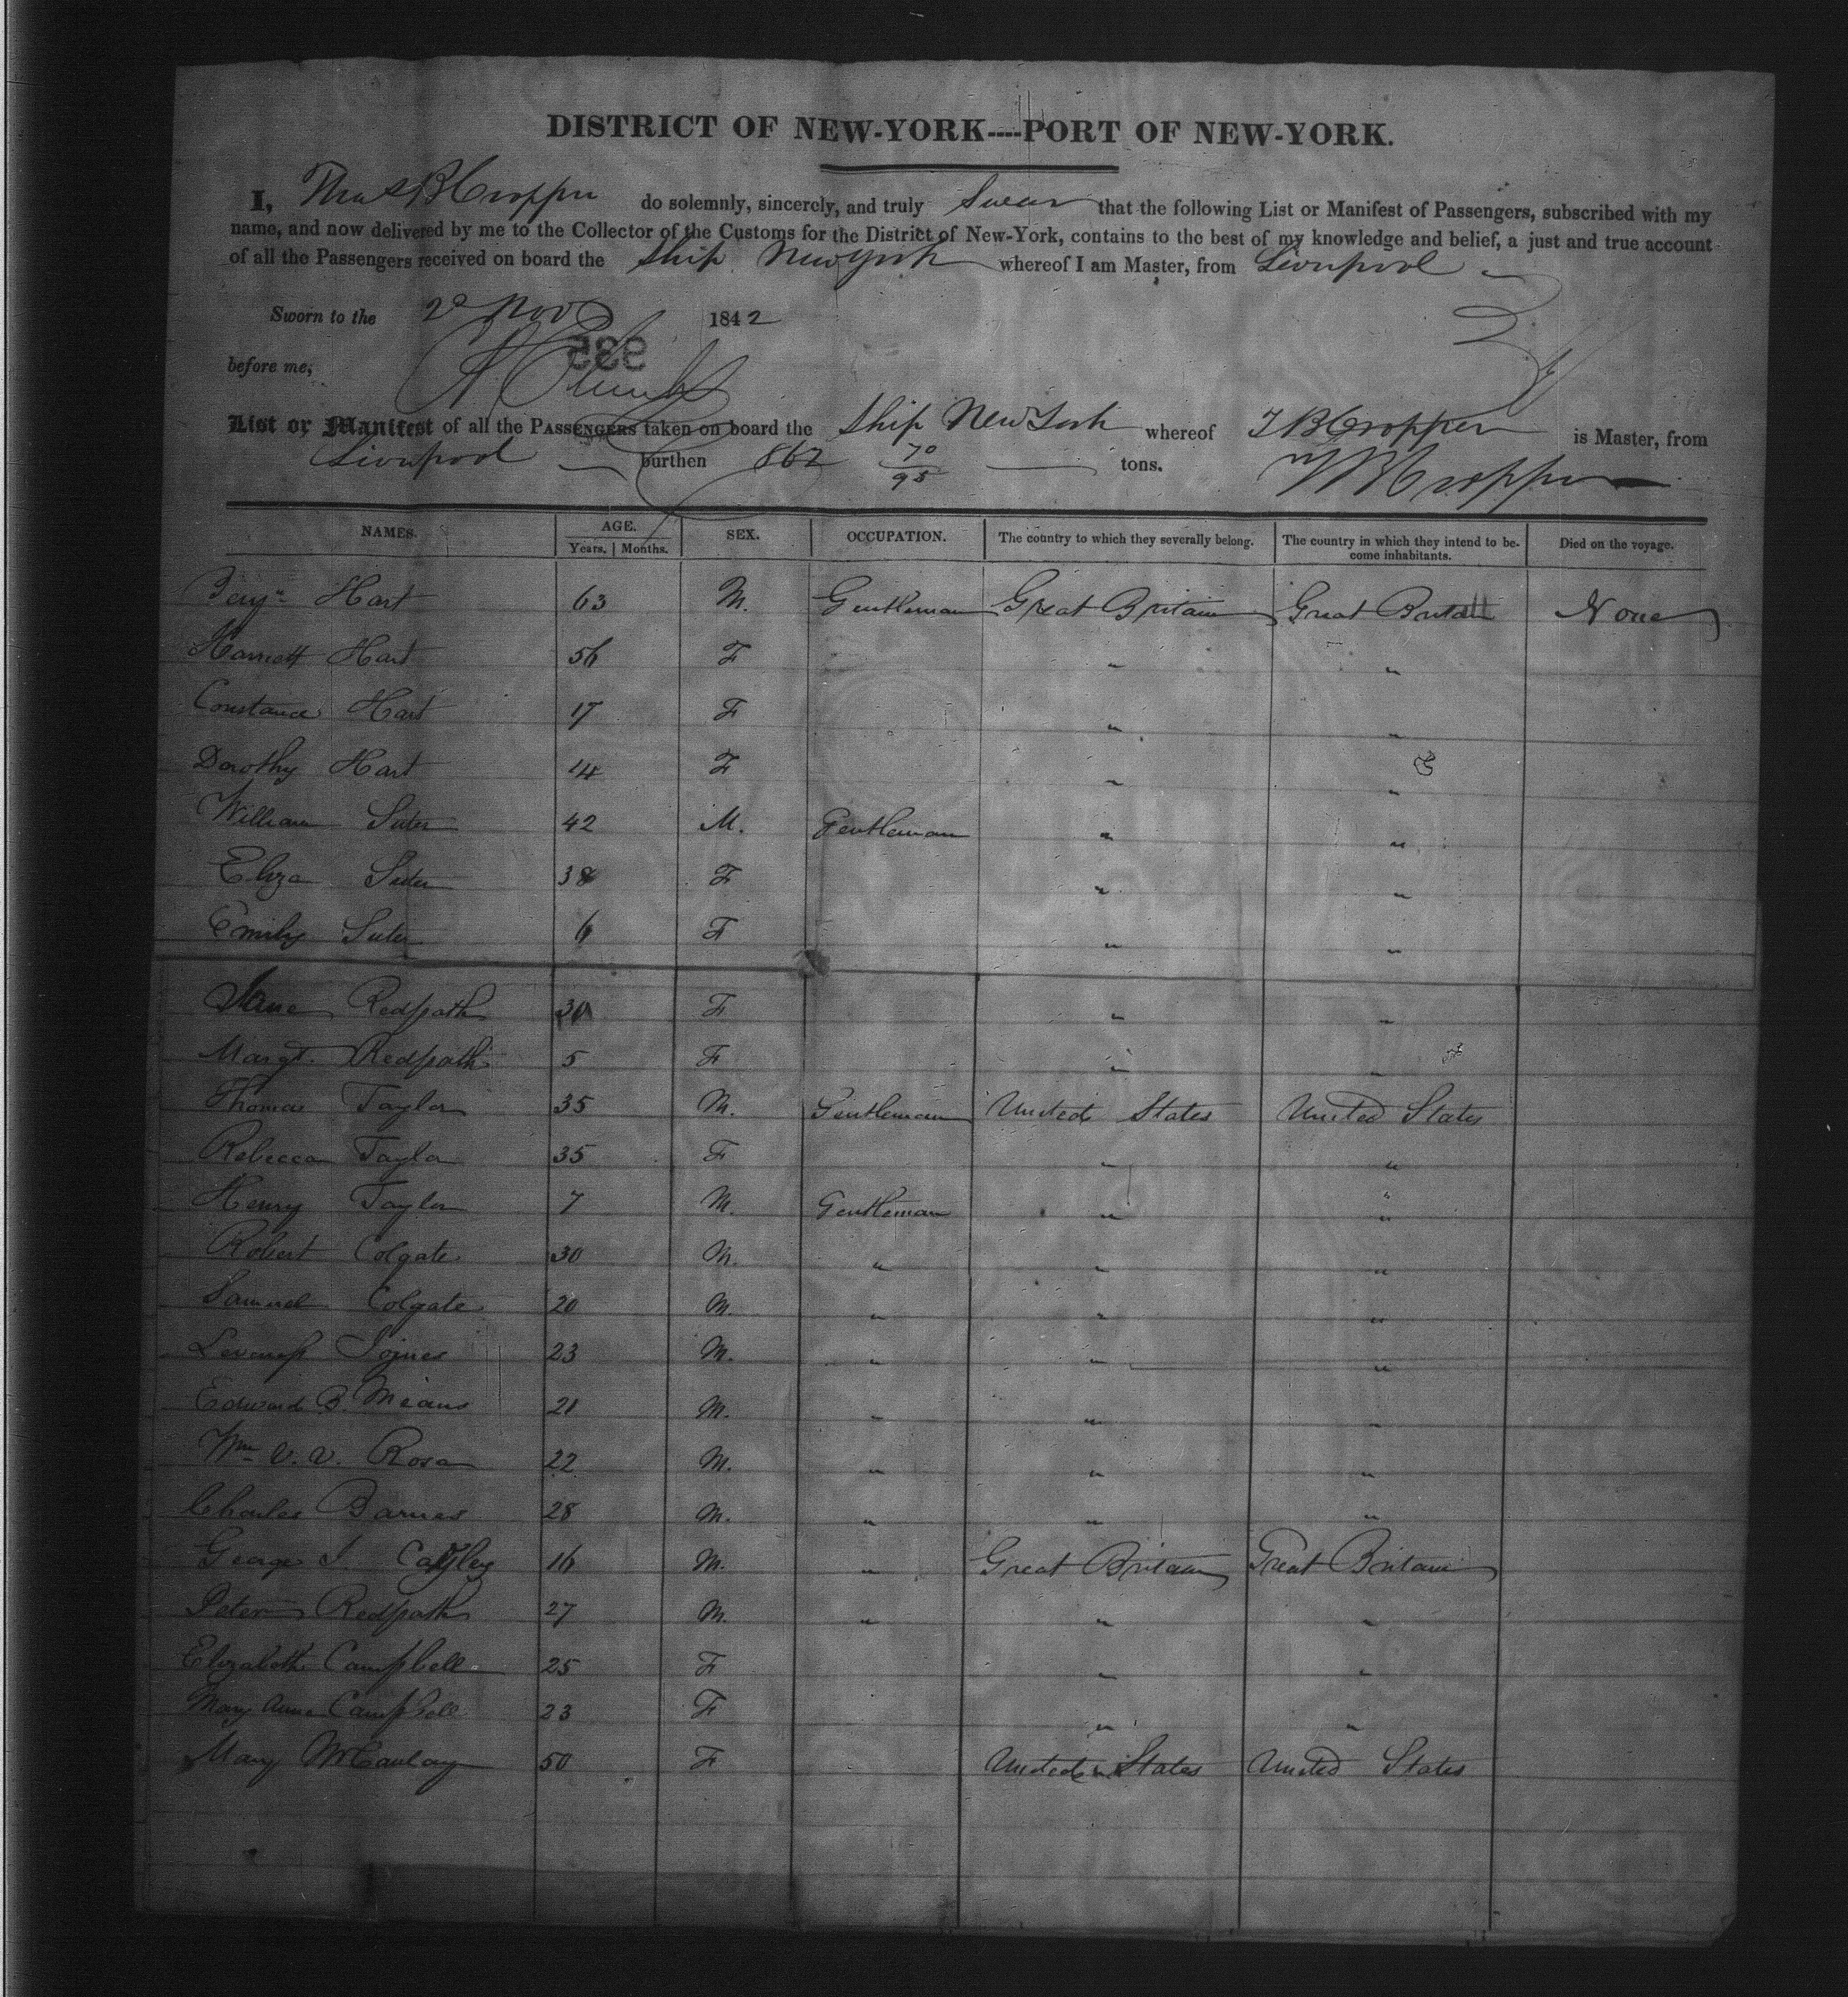 DISTRICT OF NEW-YORK----PORT OF NEW-YORK.
I, Thos B Cropper do solemnly, sincerely, and truly Swear that the following List or Manifest of Passengers, subscribed with my
name, and now delivered by me to the Collector of the Customs for the District of New-York, contains to the best of my knowledge and belief, a just and true account
of all the Passengers received on board the Ship New York whereof I am Master, from Liverpool
Sworn to the 2d Nov 1842
935
before me,
List or Manifest of all the PASSENGERS taken on board the Ship New York whereof T B Cropper is Master, from
Liverpool burthen 862 70/95 tons. T B Cropper
NAMES. AGE. Years. Months. SEX. OCCUPATION. The country to which they severally belong. The country in which they intend to become inhabitants. Died on the voyage.
Benjn Hart 63 M. Gentleman Great Britain Great Britain None
Harriott Hart 56 F " "
Constance Hart 17 F " "
Dorothy Hart 14 F " "
William Suter 42 M. Gentleman " "
Eliza Suter 38 F " "
Emily Suter 6 F " "
Jane Redpath 30 F " "
Margt. Redpath 5 F " "
Thomas Taylor 35 M. Gentleman United States United States
Rebecca Taylor 35 F " "
Henry Taylor 7 M. Gentleman " "
Robert Colgate 30 M. " " "
Samuel Colgate 20 M. " " "
23 M. " " "
Edward B. Means 21 M. " " "
Wm V. V. Rosa 22 M. " " "
Charles Barnes 28 M. " " "
George J. 16 M. " Great Britain Great Britain
Peter Redpath 27 M. " " "
Elizabeth Campbell 25 F " "
Mary Anne Campbell 23 F " "
Mary McCaulay 50 F United States United States